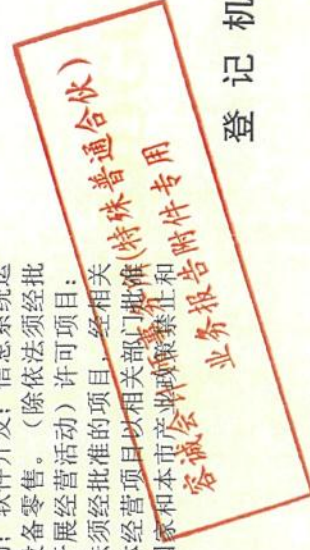 ；软件开发；信息系统运
备零售。（除依法须经批
开展经营活动）许可项目：
法须经批准的项目，经相关
经营项目以相关部门批准
国家和本市产业政策禁止和
容诚会计师事务所(特殊普通合伙)
业务报告附件专用
登记机